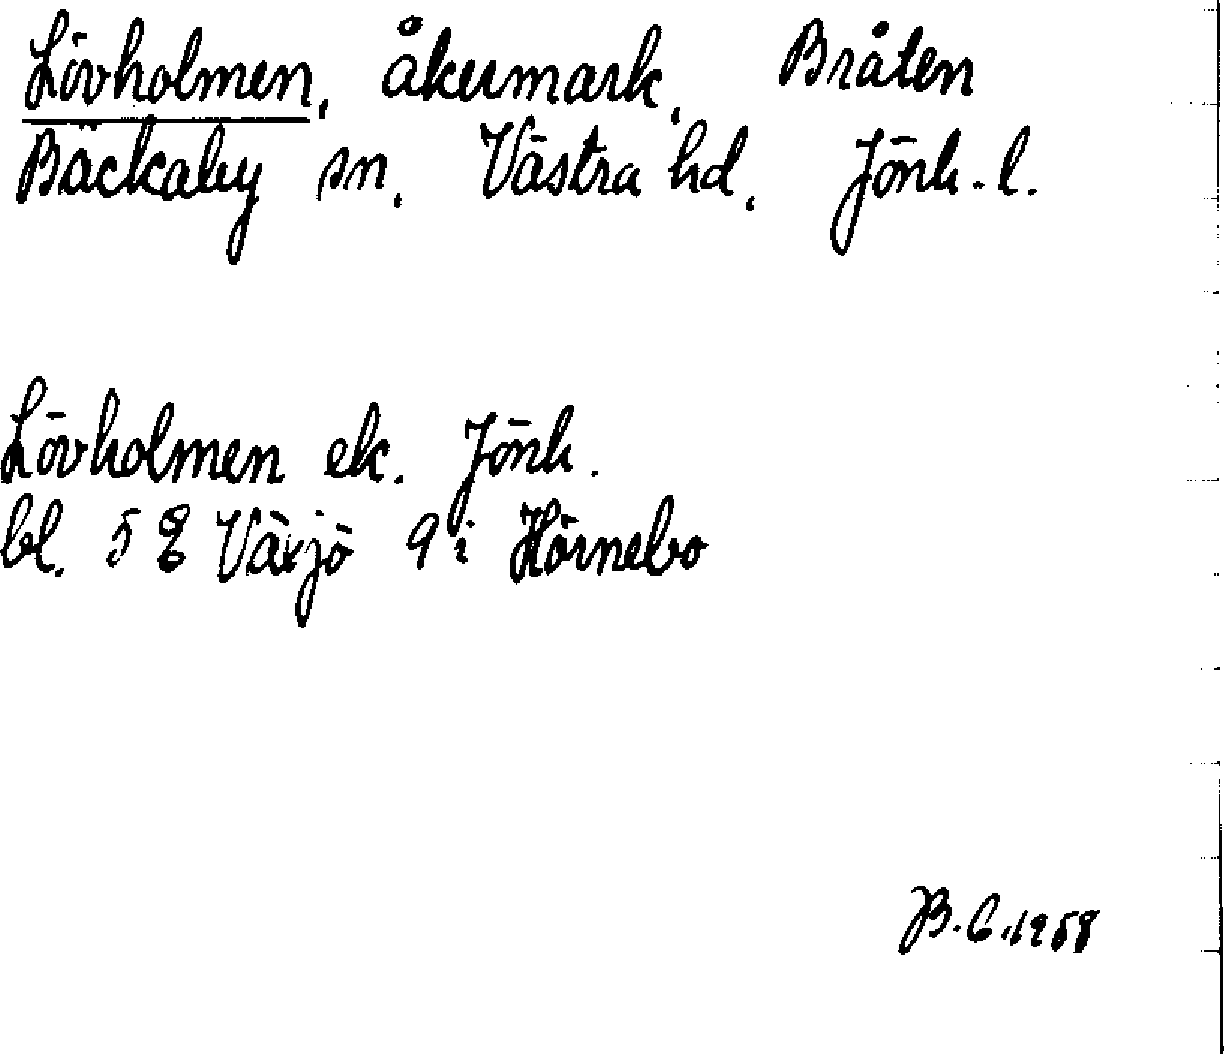 Lövholmen, åkermark, Bråten
Bäckaby sn, Västra hd, Jönk. l.
Lövholmen ek. Jönk.
bl. 5 E Växjö 9 i Hörnebo
B. C. 1958